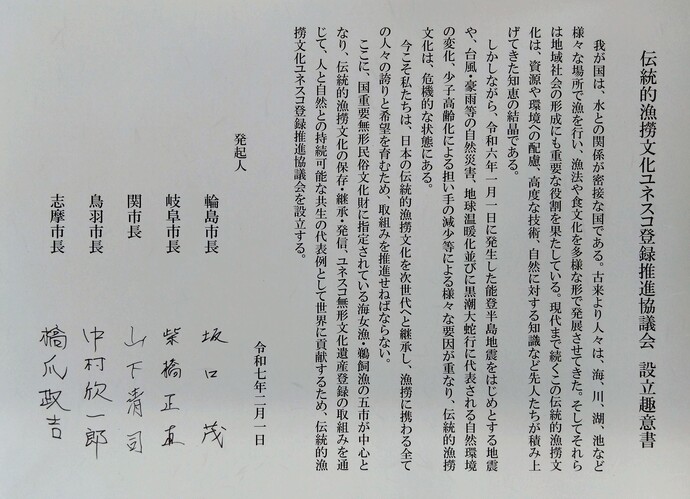 伝統的漁撈文化ユネスコ登録推進協議会　設立趣意書
我が国は、水との関係が密接な国である。古来より人々は、海、川、湖、池など
様々な場所で漁を行い、漁法や食文化を多様な形で発展させてきた。そしてそれら
は地域社会の形成にも重要な役割を果たしている。現代まで続くこの伝統的漁撈文
化は、資源や環境への配慮、高度な技術、自然に対する知識など先人たちが積み上
げてきた知恵の結晶である。
しかしながら、令和六年一月一日に発生した能登半島地震をはじめとする地震
や、台風・豪雨等の自然災害、地球温暖化並びに黒潮大蛇行に代表される自然環境
の変化、少子高齢化による担い手の減少等による様々な要因が重なり、伝統的漁撈
文化は、危機的な状態にある。
今こそ私たちは、日本の伝統的漁撈文化を次世代へと継承し、漁撈に携わる全て
の人々の誇りと希望を育むため、取組みを推進せねばならない。
ここに、国重要無形民俗文化財に指定されている海女漁・鵜飼漁の五市が中心と
なり、伝統的漁撈文化の保存・継承・発信、ユネスコ無形文化遺産登録の取組みを通
じて、人と自然との持続可能な共生の代表例として世界に貢献するため、伝統的漁
撈文化ユネスコ登録推進協議会を設立する。
令和七年二月一日
発起人
輪島市長　坂口茂
岐阜市長　柴橋正直
関市長　山下清司
鳥羽市長　中村欣一郎
志摩市長　橋爪政吉